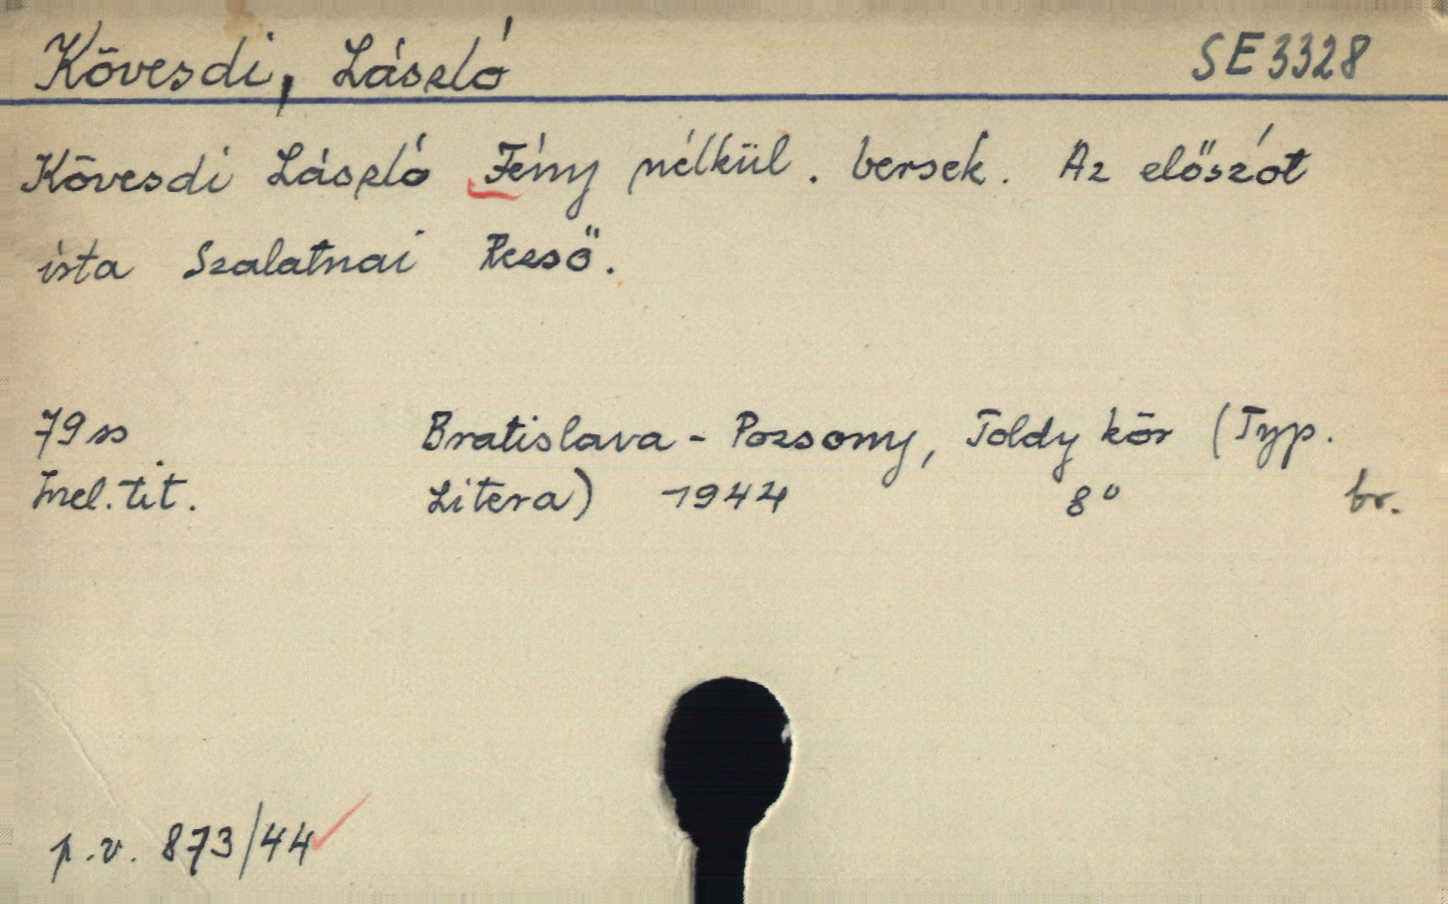 Kövesdi, László SE 3328
Kövesdi László Fény nélkül. bersek. Az előszót
ista Szalatnai Rezső.
79 ss Bratislava - Pozsony, Toldy kör (Typ.
tit. Litera) 1944 8° br.
p.v. 873/44